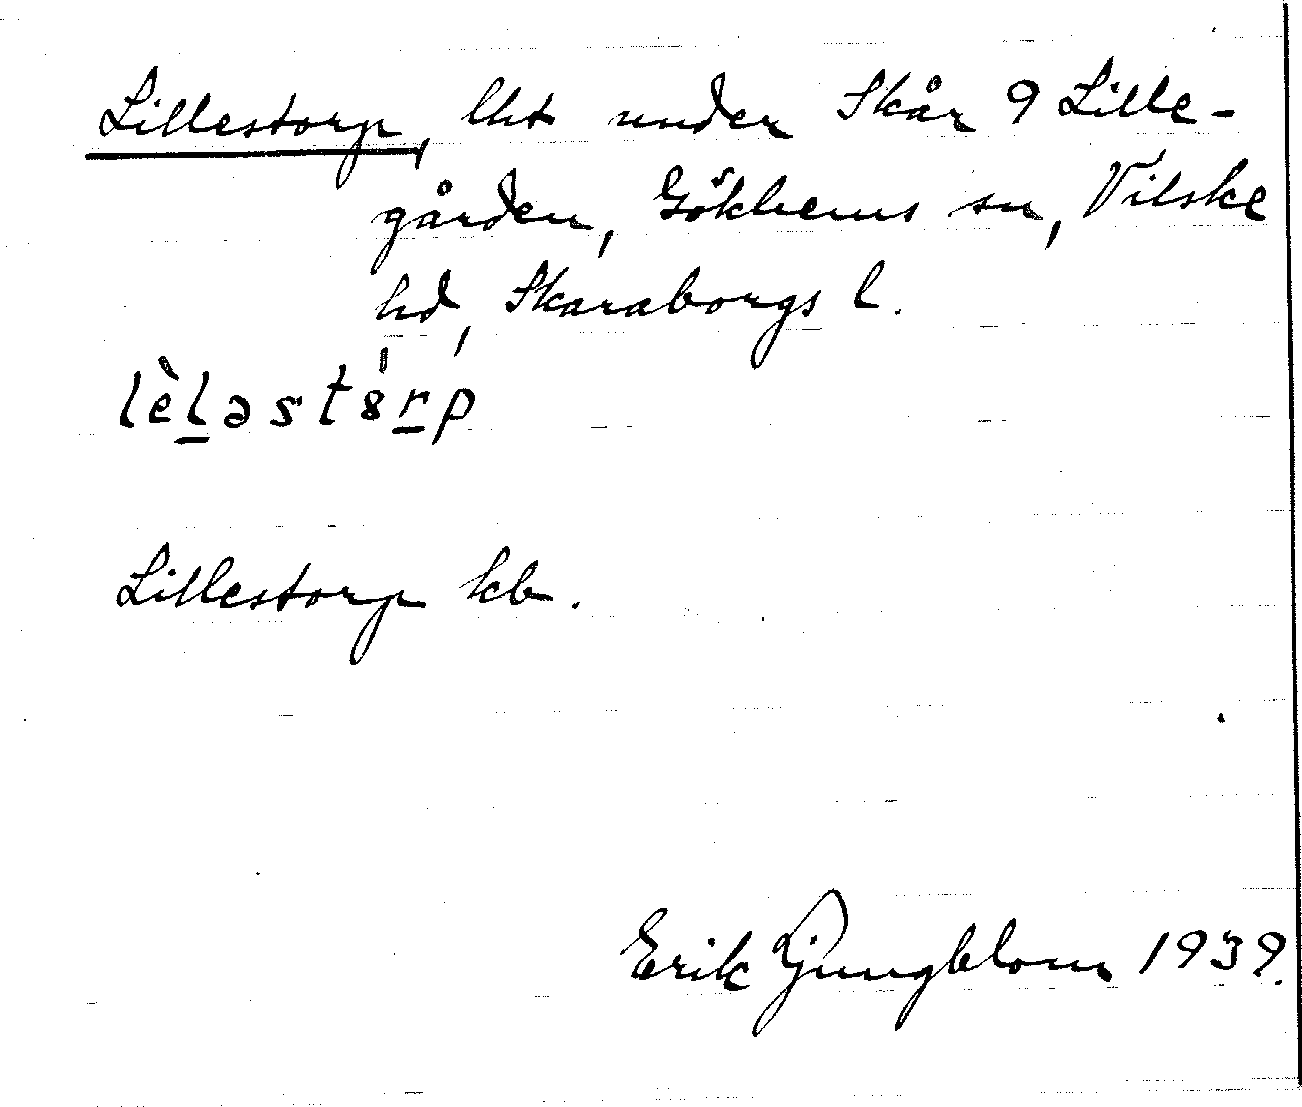 Lillestorp, lht under Skår 9 Lille-
gården, Gökhems sn, Vilske
hd, Skaraborgs l.
lèl̲əstȣ́r̲p
Lillestorp kb.
Erik Ljungblom 1939.